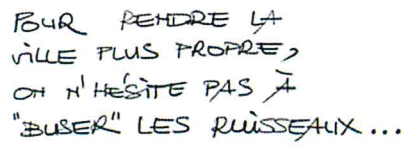 POUR RENDRE LA
VILLE PLUS PROPRE,
ON N'HÉSITE PAS À
"BUSER" LES RUISSEAUX...